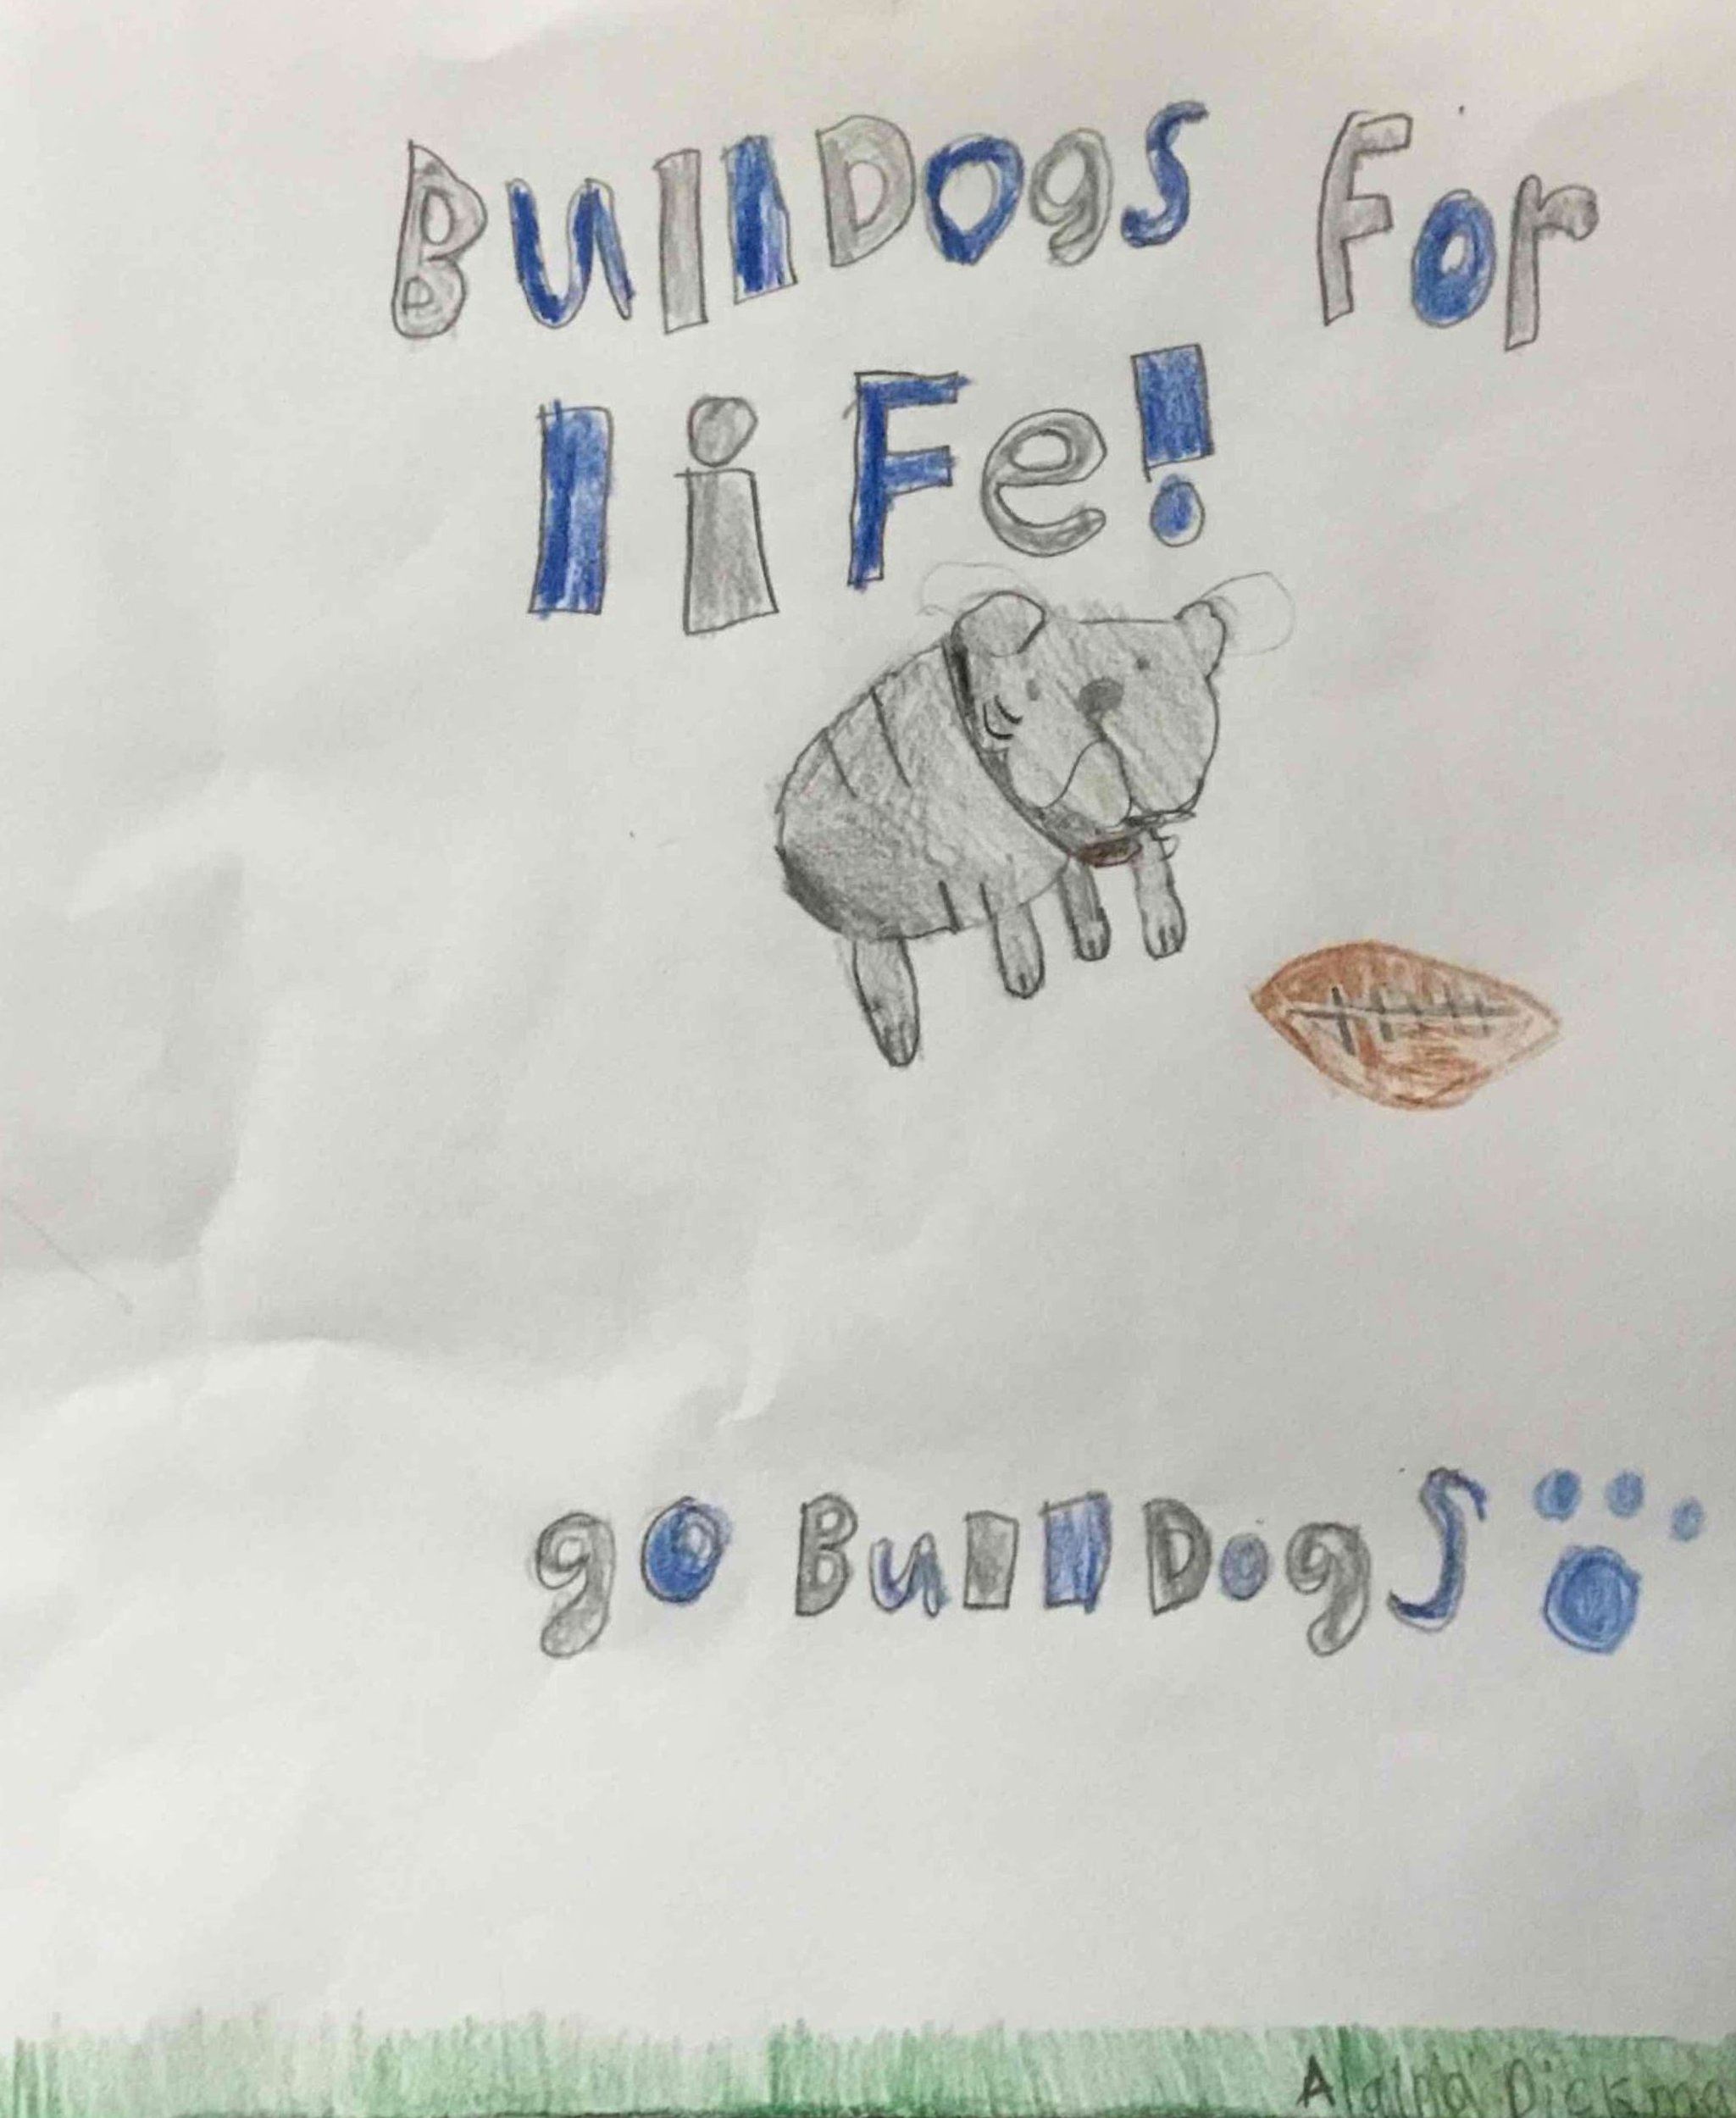 BullDogs For
liFe!
go BullDogs
Alaina Dickma